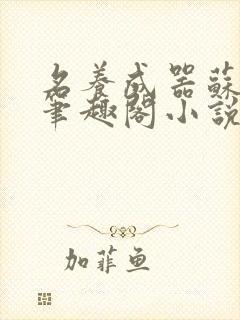 名養成器蘇
筆趣閣小說
加菲魚